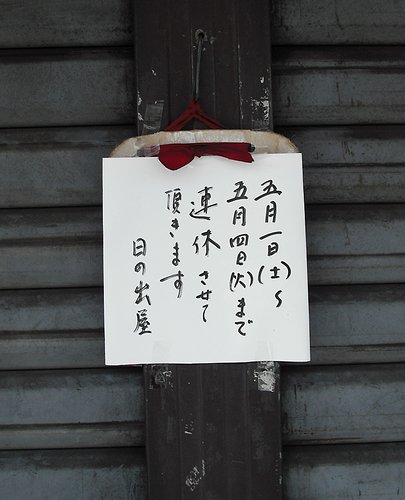 五月一日(土)〜
五月四日(火)まで
連休させて
頂きます
日の出屋